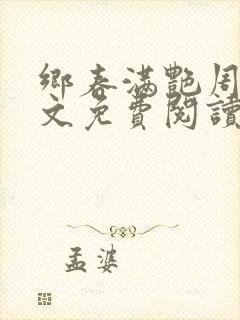 鄉春滿艷周
文免費閱讀
孟婆